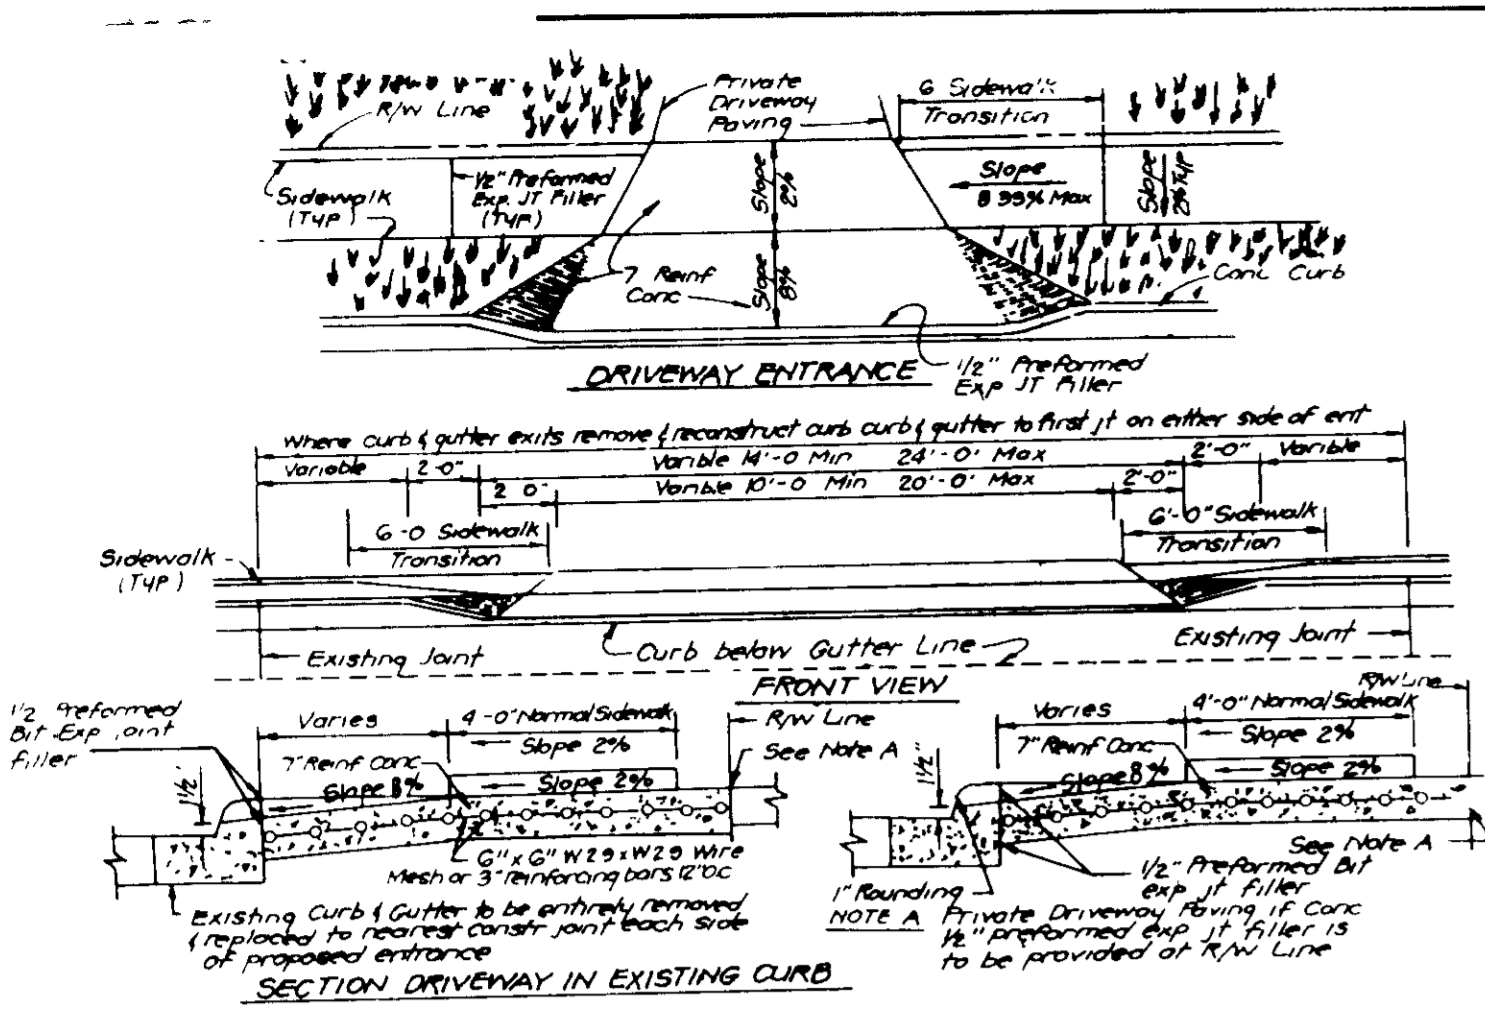 Private
Driveway
Paving
6 Sidewalk
Transition
R/W Line
Sidewalk
(TYP)
1/2" Preformed
Exp. JT Filler
(TYP)
Slope
2%
Slope
8.33% Max
Slope
2% Typ
7 Reinf
Conc
Slope
8%
Conc Curb
DRIVEWAY ENTRANCE
1/2" Preformed
Exp JT Filler
Where curb & gutter exits remove & reconstruct curb curb & gutter to first jt on either side of ent
Variable
2'-0"
Varible 14'-0 Min 24'-0' Max
2'-0"
Varible
2 0"
Varible 10'-0 Min 20'-0' Max
2'-0"
6-0 Sidewalk
Transition
6'-0" Sidewalk
Transition
Sidewalk
(TYP)
Existing Joint
Curb below Gutter Line
Existing Joint
FRONT VIEW
1/2 Preformed
Bit Exp joint
filler
Varies
4-0" Normal Sidewalk
Slope 2%
R/W Line
See Note A
7" Reinf Conc
Slope 8%
Slope 2%
1 1/2"
6" x 6" W29 x W29 Wire
Mesh or 3" reinforcing bars 12" OC
Existing Curb & Gutter to be entirely removed
& replaced to nearest constr joint each side
of proposed entrance
SECTION DRIVEWAY IN EXISTING CURB
R/W Line
Varies
4'-0" Normal Sidewalk
Slope 2%
7" Reinf Conc
Slope 8%
Slope 2%
1 1/2"
See Note A
1/2" Preformed Bit
exp jt filler
1" Rounding
NOTE A Private Driveway Paving if Conc
1/2" preformed exp jt filler is
to be provided at R/W Line